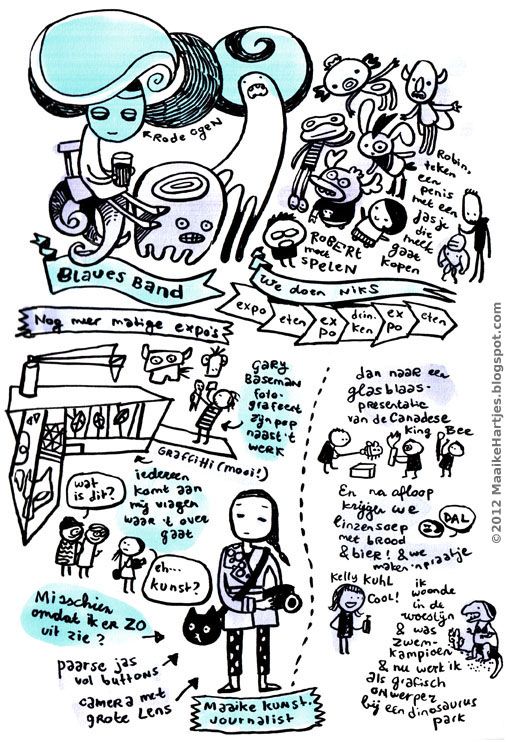 Rode ogen
Robin,
teken
een
penis
met een
jasje
die
meert
gaat
kopen
Robert
moet
spelen
Blaues Band
We doen niks
expo
eten
ex
po
drin-
ken
ex
po
eten
Nog meer matige expo's
Gary
Baseman
foto-
grafeert
zijn pop
naast 't
werk
Graffitti (mooi!)
wat
is dit?
iedereen
komt aan
mij vragen
waar 't over
gaat
eh...
kunst?
Misschien
omdat ik er ZO
uit zie?
paarse jas
vol buttons
camera met
grote lens
Maaike kunst-
journalist
dan naar een
glasblaas-
presentatie
van de Canadese
king Bee
En na afloop
krijgen we
linzensoep
met brood
& bier! & we
maken 'n praatje
DAL
Kelly Kuhl
Cool!
ik
woonde
in de
woestijn
& was
zwem-
kampioen
& nu werk ik
als grafisch
ontwerper
bij een dinosaurus
park
©2012 MaaikeHartjes.blogspot.com